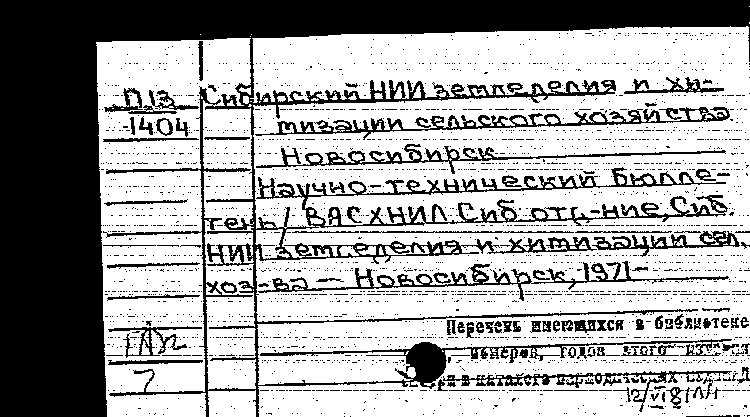 П13
1404
Сибирский НИИ земледелия и хи-
мизации сельского хозяйства
Новосибирск
Научно-технический бюлле-
тень / ВАСХНИЛ. Сиб. отд-ние, Сиб.
НИИ земледелия и химизации сел.
хоз-ва — Новосибирск, 1971-
Перечень имеющихся в библиотеке
номеров, годов этого издания
в каталоге периодических изданий
7